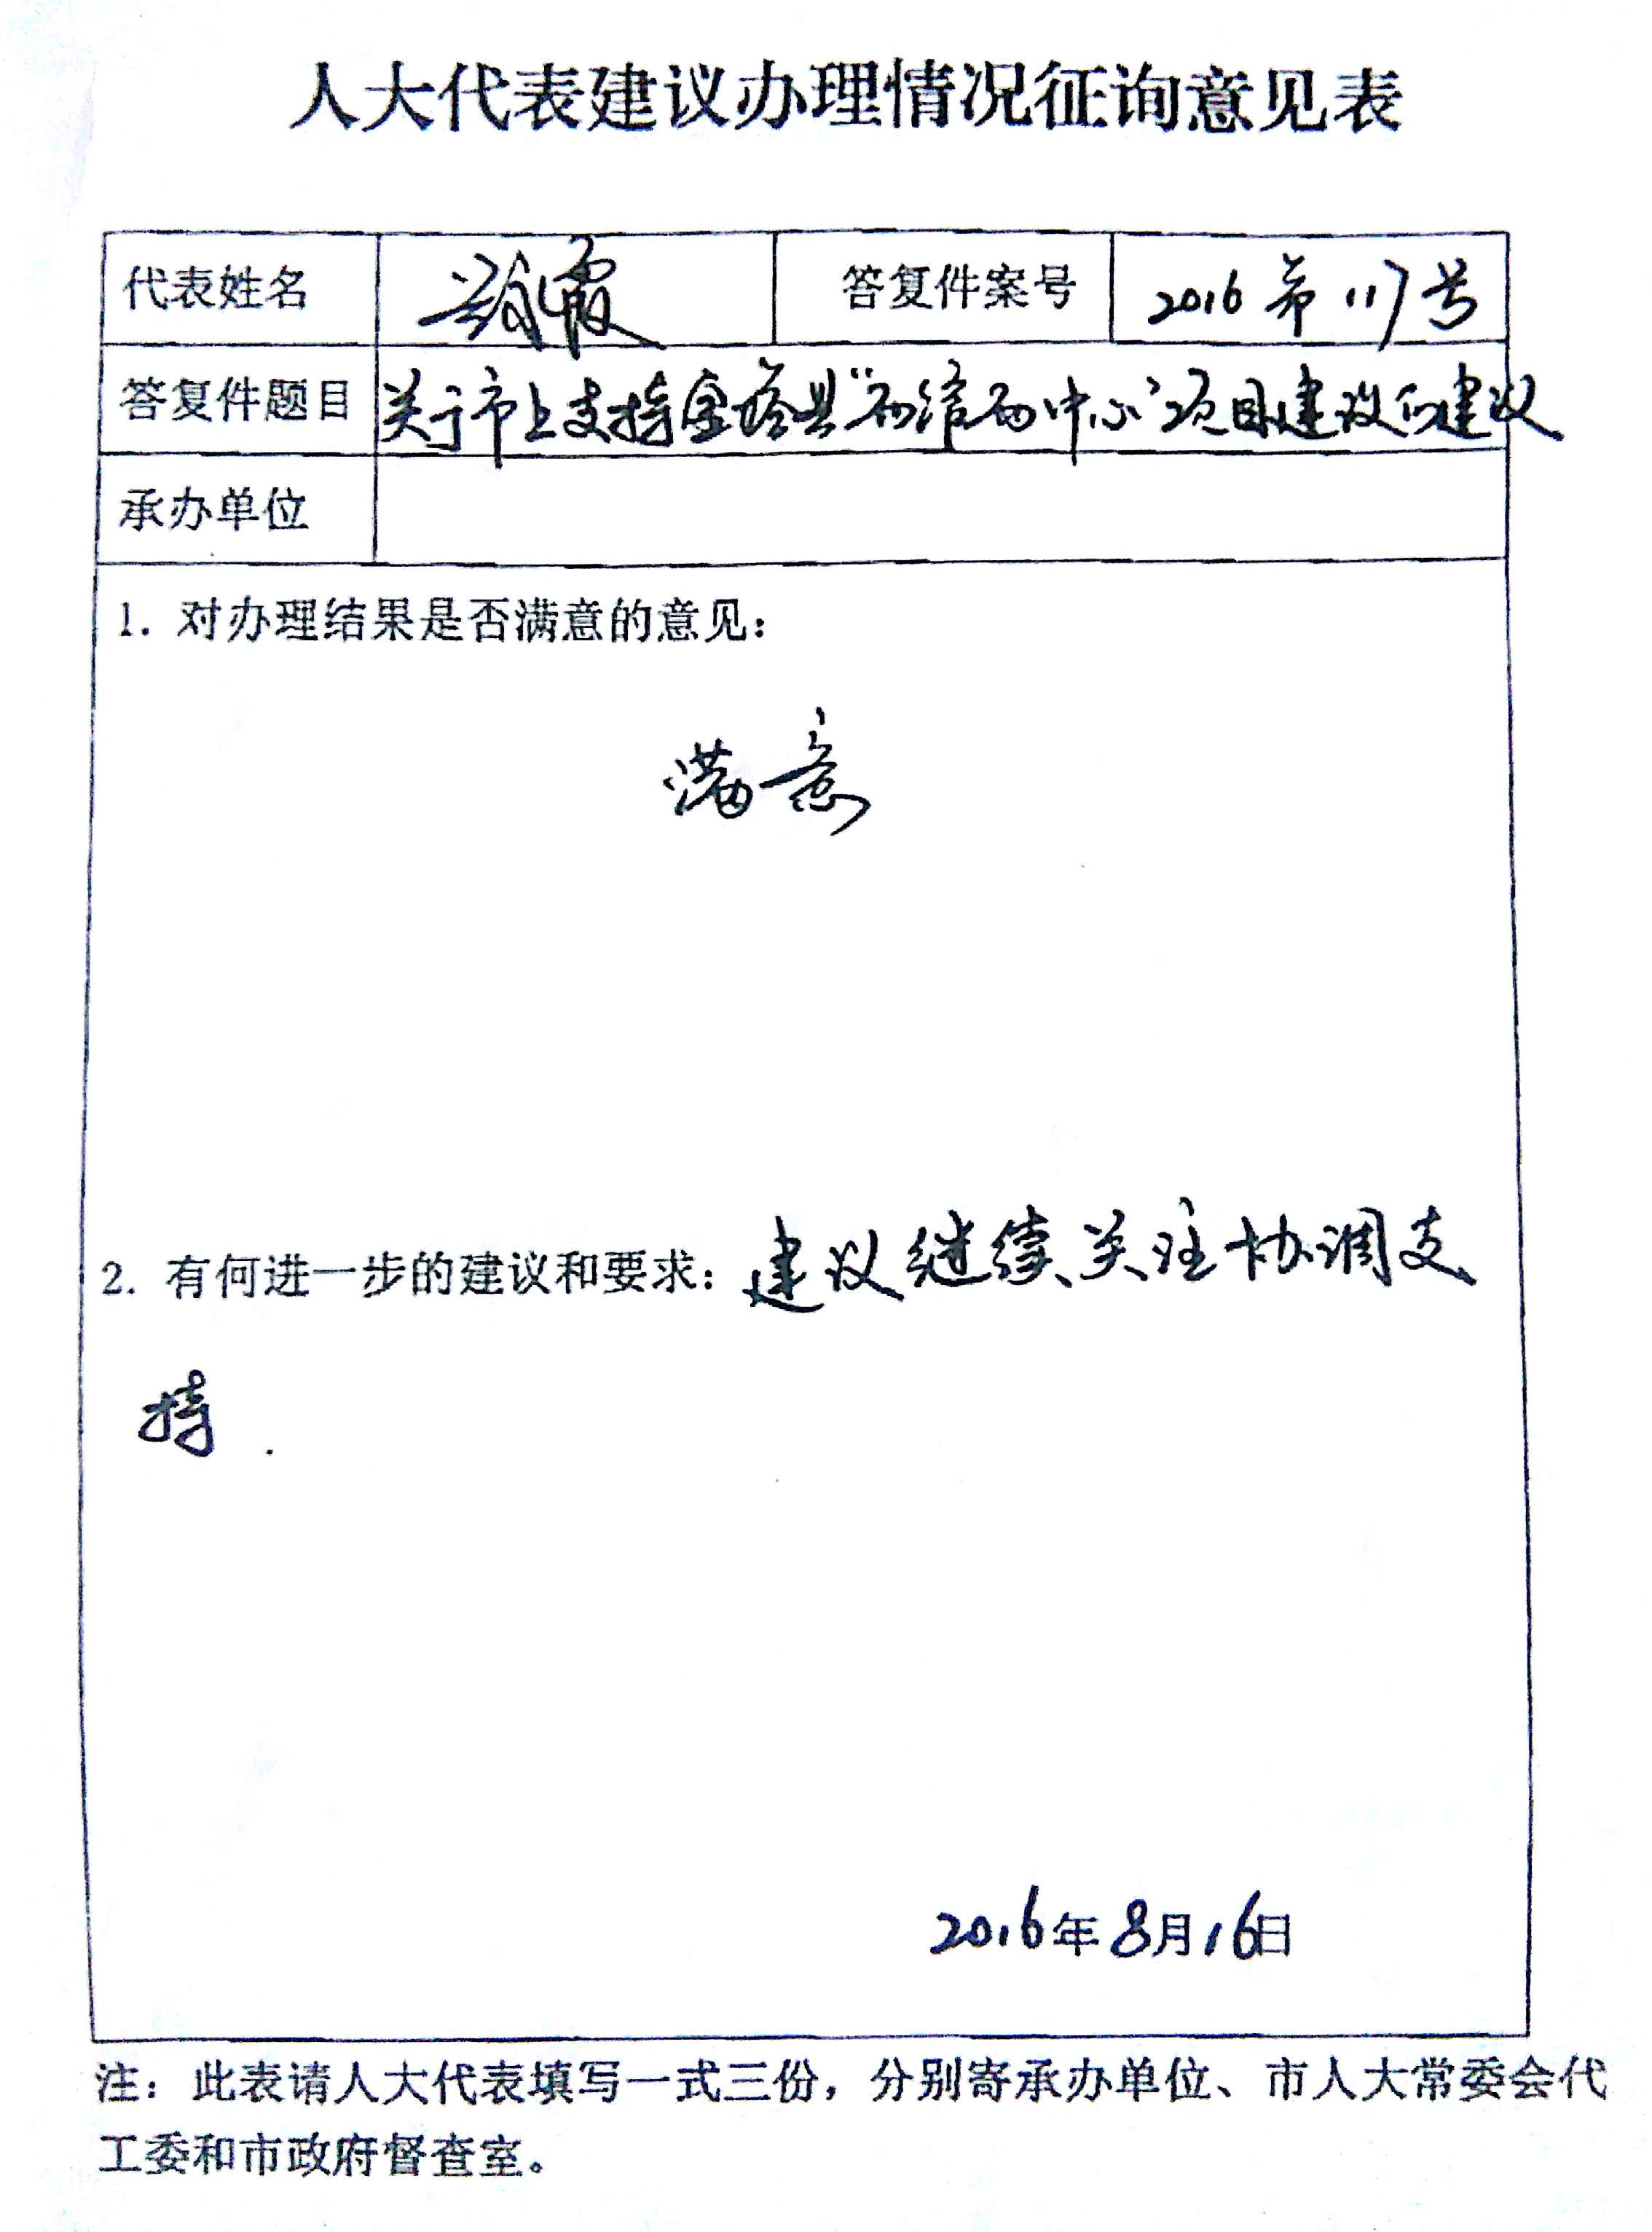 人大代表建议办理情况征询意见表
代表姓名 答复件案号 2016第117号
答复件题目 关于市上支持金塔县“两馆两中心”项目建设的建议
承办单位
1. 对办理结果是否满意的意见：
满意
2. 有何进一步的建议和要求：建议继续关注协调支
持.
2016年8月16日
注：此表请人大代表填写一式三份，分别寄承办单位、市人大常委会代
工委和市政府督查室。